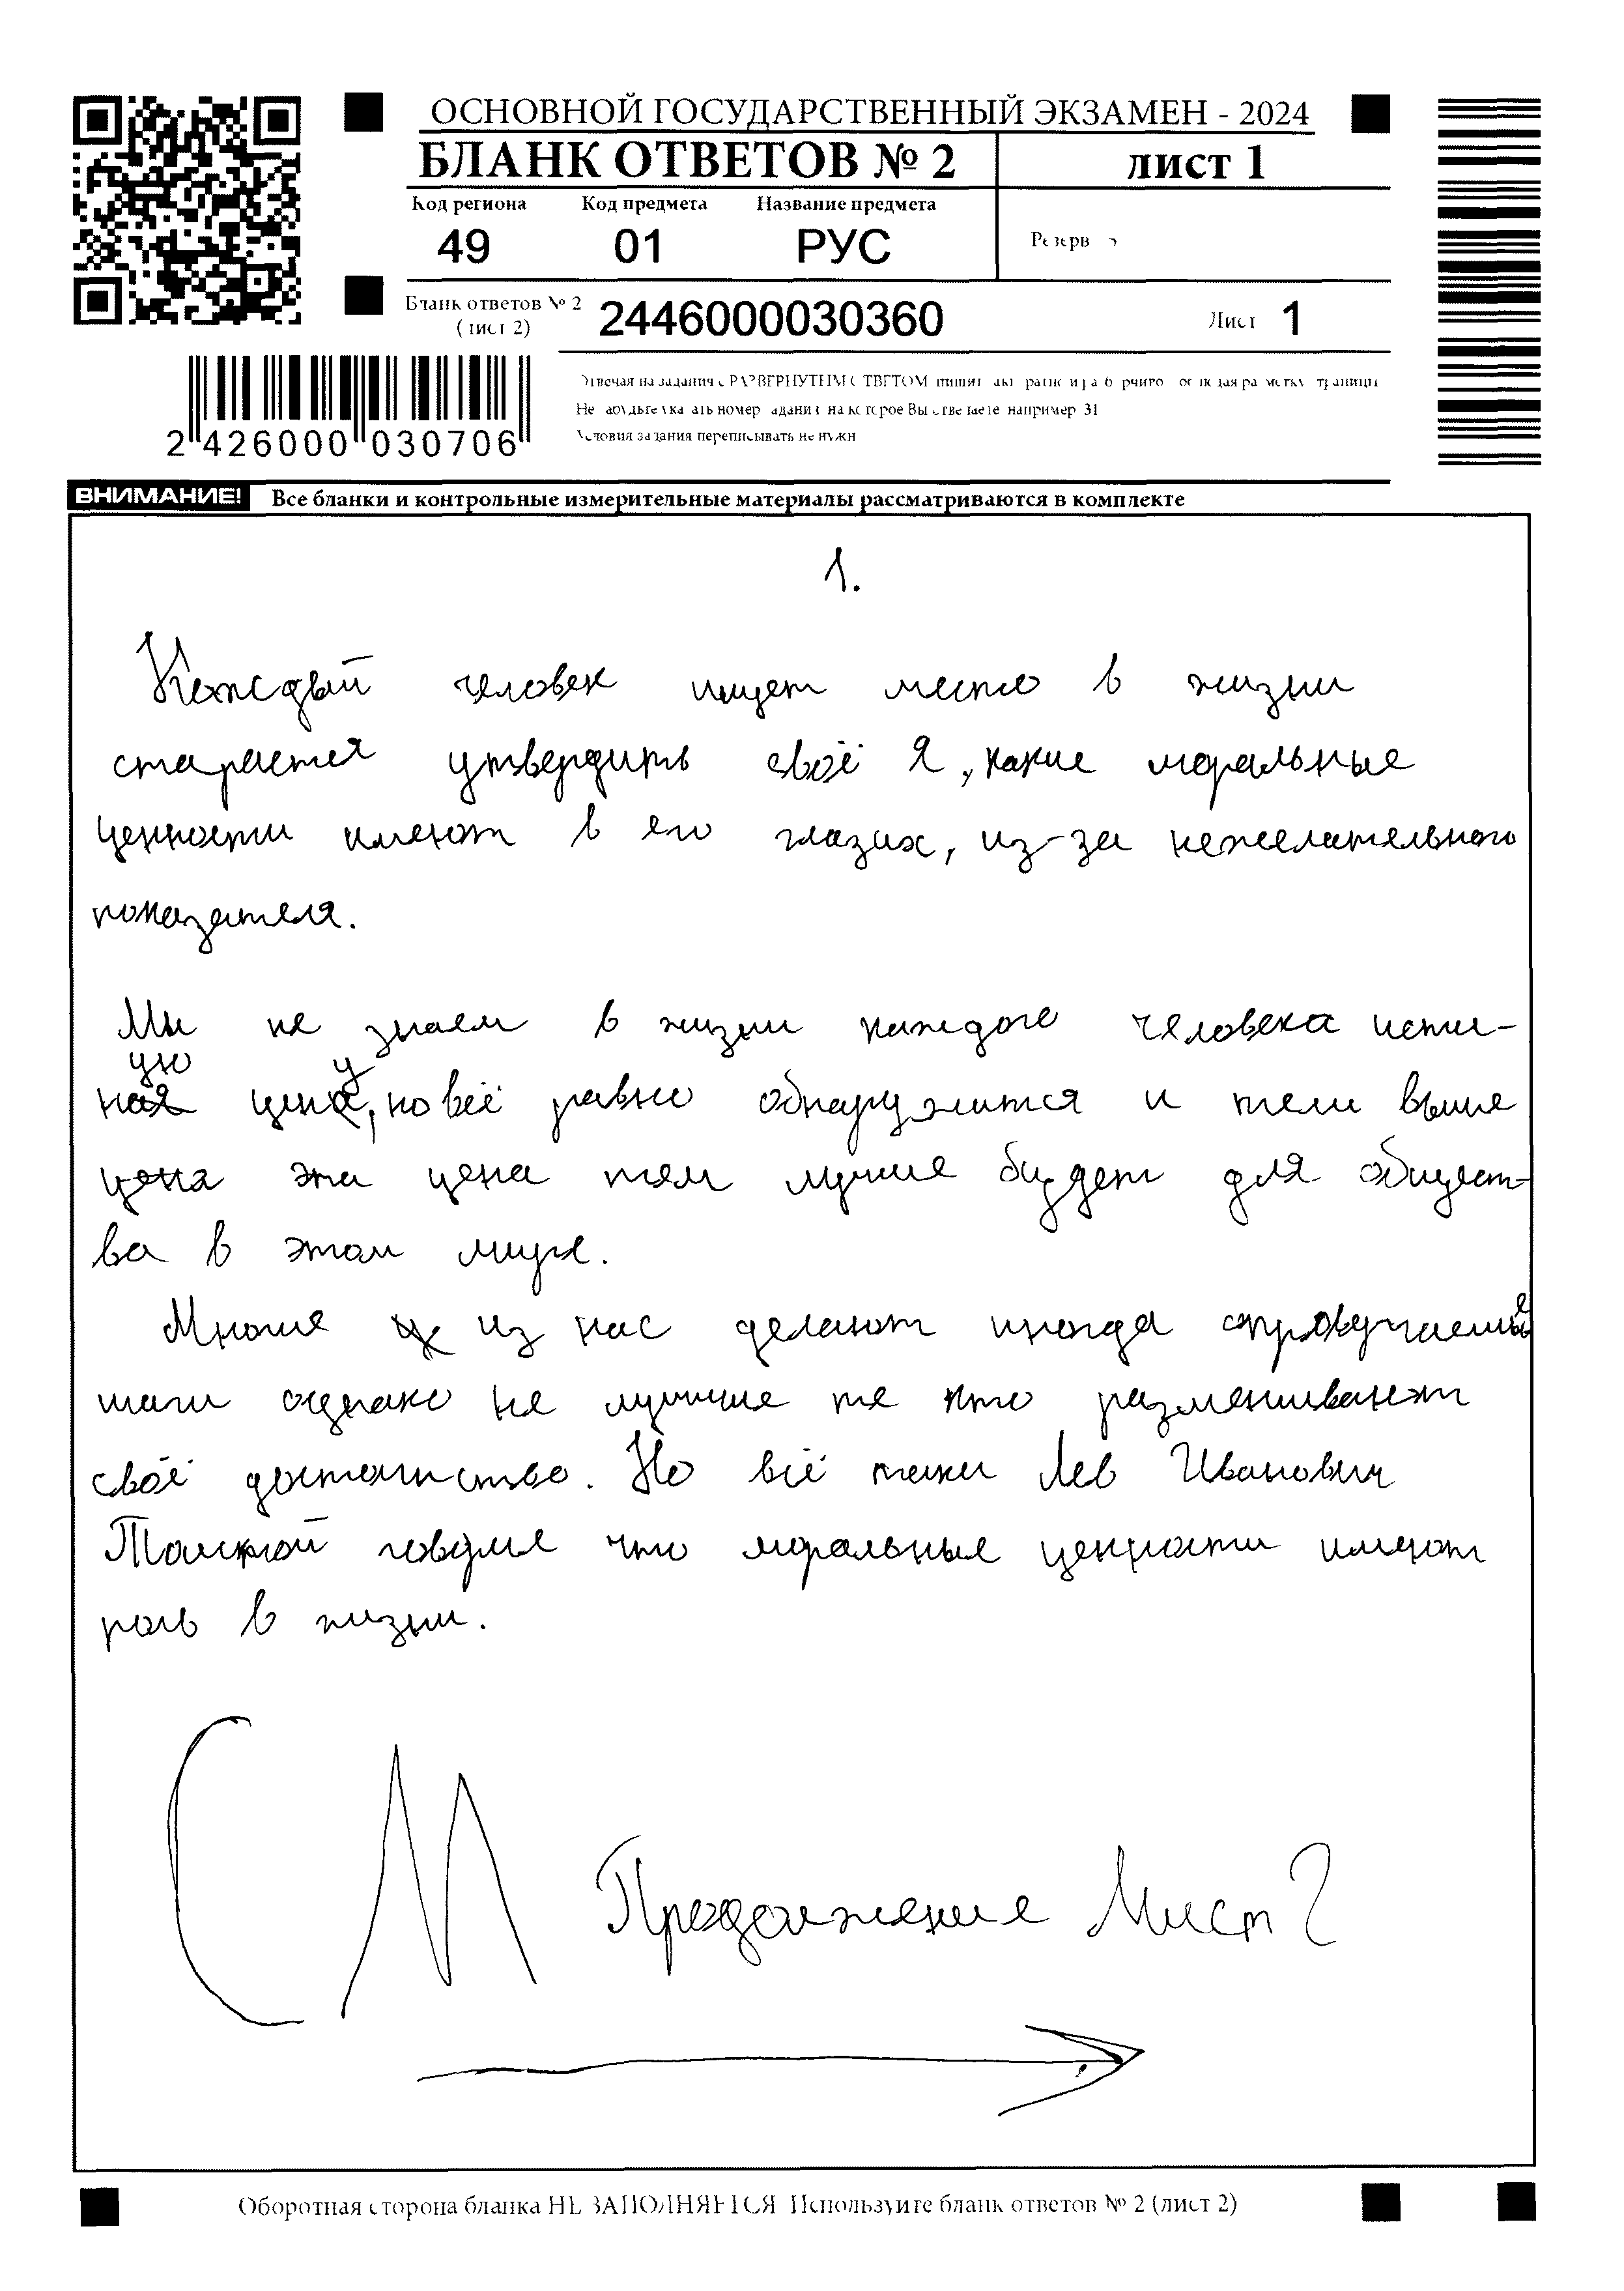 ОСНОВНОЙ ГОСУДАРСТВЕННЫЙ ЭКЗАМЕН - 2024
БЛАНК ОТВЕТОВ № 2
лист 1
Код региона Код предмета Название предмета
49 01 РУС
Резерв
Бланк ответов № 2
(лист 2)
2446000030360
Лист 1
2 426000 030706
Условия задания переписывать не нужн
ВНИМАНИЕ! Все бланки и контрольные измерительные материалы рассматриваются в комплекте
1.
Каждый человек ищет место в жизни
старается утвердить своё Я, какие моральные
ценности имеют в его глазах, из-за нежелательного
показателя.
Мы не знаем в жизни каждого человека исти-
ную цену, но всё равно обнаружится и тем выше
эта цена тем лучше будет для общест-
ва в этом мире.
Многие из нас делают иногда
шаги однако не лучшие те кто разменивают
своё достоинство. Но всё таки Лев Иванович
Толстой говорил что моральные ценности имеют
роль в жизни.
СМ Продолжение Лист 2
Оборотная сторона бланка НЕ ЗАПОЛНЯЕТСЯ Используйте бланк ответов № 2 (лист 2)